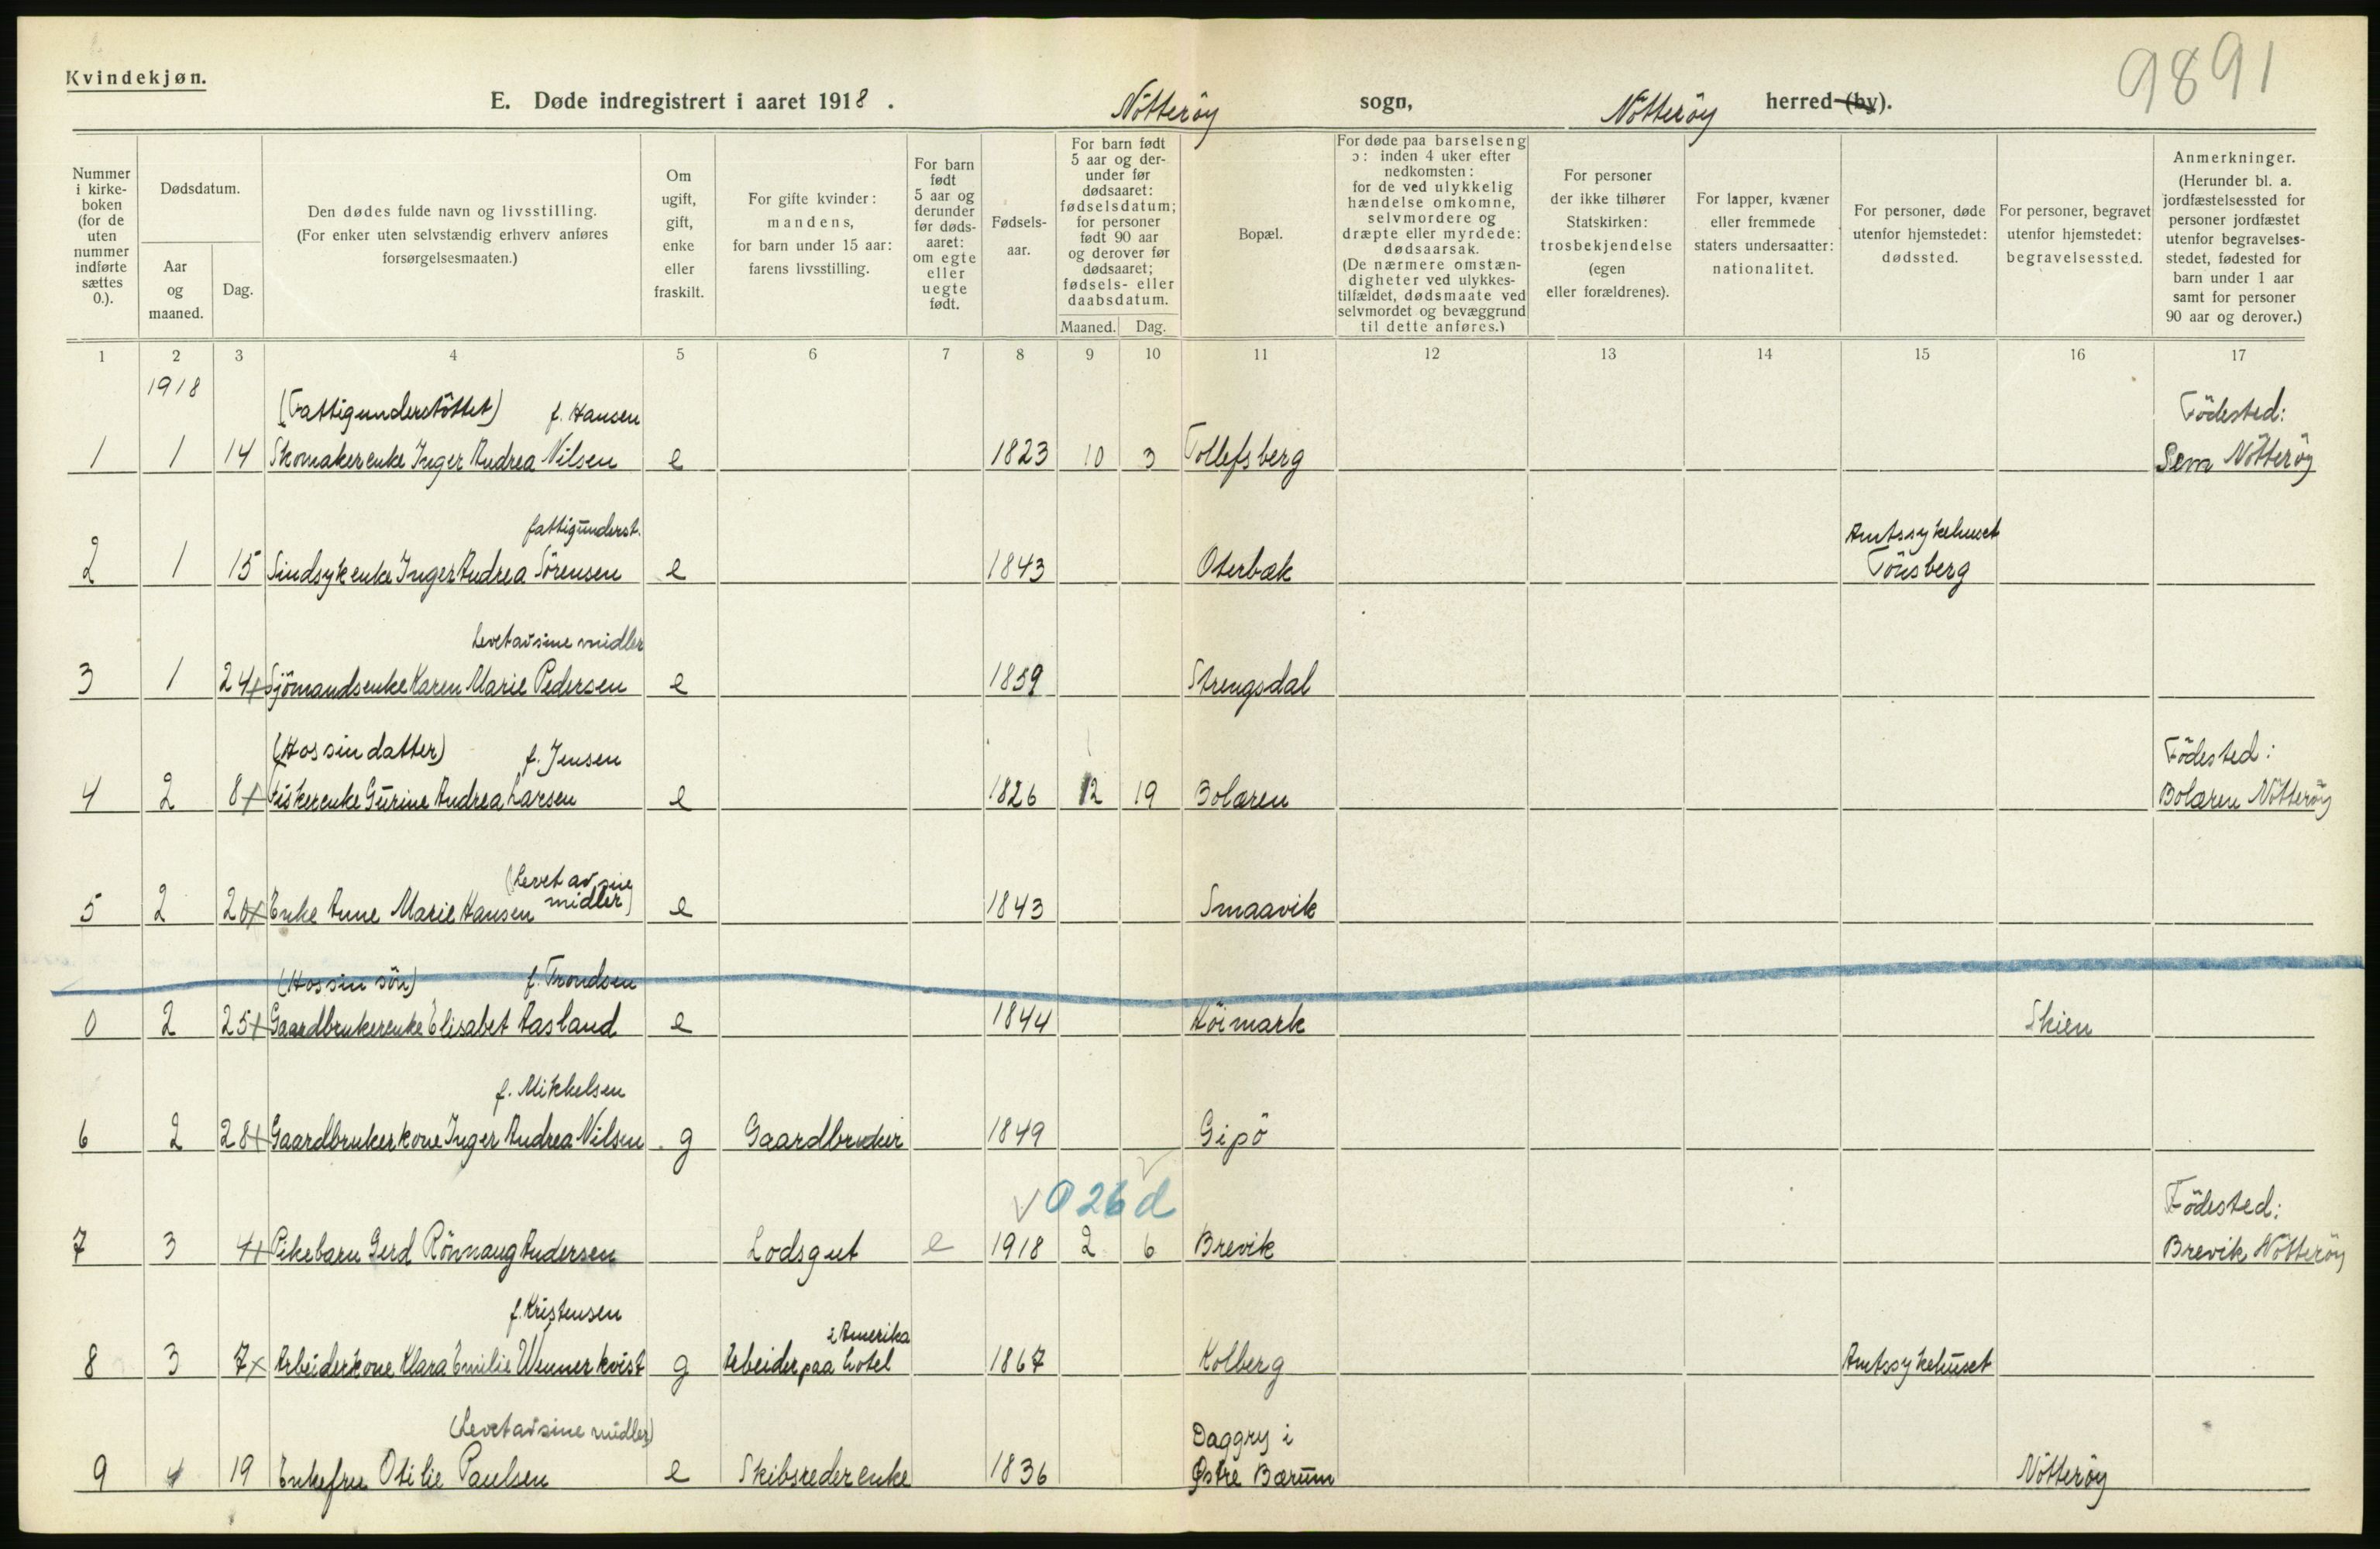 Kvindekjøn.
9891
E. Døde indregistrert i aaret 1918. Nötteröy sogn, Nötteröy herred (by).
Nummer i kirke-boken (for de uten nummer indførte sættes 0.).
Dødsdatum.
Aar og maaned.
Dag.
Den dødes fulde navn og livsstilling.
(For enker uten selvstændig erhverv anføres forsørgelsesmaaten.)
Om ugift, gift, enke eller fraskilt.
For gifte kvinder: mandens, for barn under 15 aar: farens livsstilling.
For barn født 5 aar og derunder før døds-aaret: om egte eller uegte født.
Fødsels-aar.
For barn født 5 aar og der-under før dødsaaret: fødselsdatum; for personer født 90 aar og derover før dødsaaret; fødsels- eller daabsdatum.
Maaned. Dag.
Bopæl.
For døde paa barselseng ɔ: inden 4 uker efter nedkomsten: for de ved ulykkelig hændelse omkomne, selvmordere og dræpte eller myrdede: dødsaarsak. (De nærmere omstæn-digheter ved ulykkes-tilfældet, dødsmaate ved selvmordet og bevæggrund til dette anføres.)
For personer der ikke tilhører Statskirken: trosbekjendelse (egen eller forældrenes).
For lapper, kvæner eller fremmede staters undersaatter: nationalitet.
For personer, døde utenfor hjemstedet: dødssted.
For personer, begravet utenfor hjemstedet: begravelsessted.
Anmerkninger. (Herunder bl. a. jordfæstelsessted for personer jordfæstet utenfor begravelses-stedet, fødested for barn under 1 aar samt for personer 90 aar og derover.)
1 2 3 4 5 6 7 8 9 10 11 12 13 14 15 16 17
1918
(Fattigunderstöttet) f. Hansen Födested:
1 1 14 Skomakerenke Inger Andrea Nilsen e 1823 10 3 Tollefsberg Sem Nötteröy
fattigunderst. Amtssykehuset
2 1 15 Sindsyk enke Inger Andrea Sörensen e 1843 Oterbæk Tönsberg
Levet av sine midler
3 1 24 + Sjömandsenke Karen Marie Pedersen e 1859 Strengsdal
(Hos sin datter) f. Jensen Födested:
4 2 8 + Fiskerenke Gurine Andrea Larsen e 1826 12 19 Bolæren Bolæren Nötteröy
(Levet av sine
5 2 20 + Enke Anne Marie Hansen midler) e 1843 Smaavik
(Hos sin sön) f. Trondsen
0 2 25 + Gaardbrukerenke Elisabet Aasland e 1844 Höimark Skien
f. Mikkelsen
6 2 28 + Gaardbrukerkone Inger Andrea Nilsen g Gaardbruker 1849 Gipö
✓ 0 26 d Födested:
7 3 4 + Pikebarn Gerd Rönnaug Andersen Lodsgut e 1918 2 6 Brevik Brevik Nötteröy
f. Kristensen i Amerika
8 3 7 × Arbeiderkone Klara Emilie Wennerkvist g Arbeider paa hotel 1867 Kolberg Amtssykehuset
(Levet av sine midler) Daggry i
9 4 19 Enkefru Otilie Paulsen e Skibsrederenke 1836 Østre Bærum Nötteröy